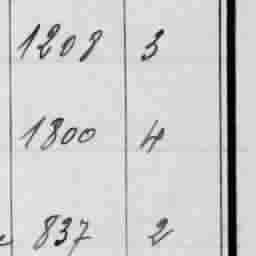 1208 3
1800 4
837 2